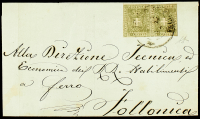 Alla Direzione Tecnica ed
Economica dei RR. Stabilimenti
a Ferro
Follonica